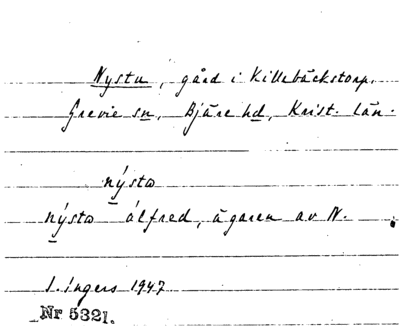 Nystu, gård i Killebäckstorp,
Grevie sn, Bjäre hd, Krist. län.
nýsta
nýsta álfred, ägaren av N.
I. Ingers 1947
Nr 5321.